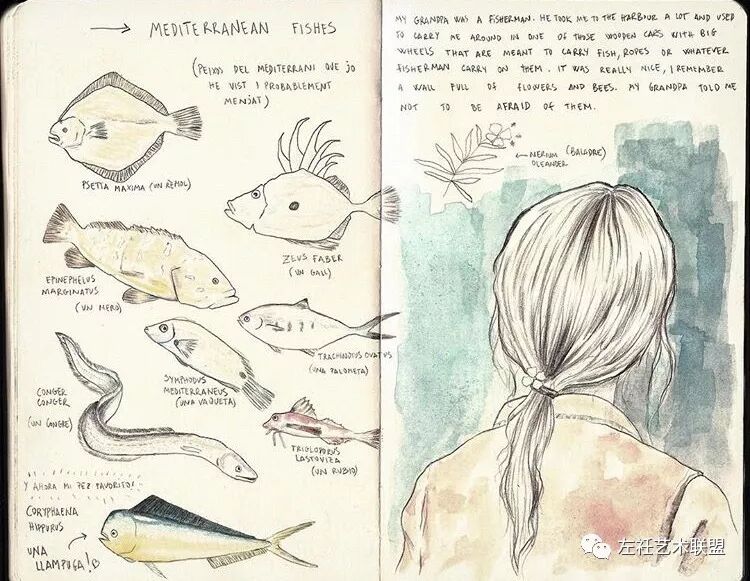 → MEDITERRANEAN FISHES
(PEIXOS DEL MEDITERRANI QUE JO
HE VIST I PROBABLEMENT
MENJAT)
PSETTA MAXIMA (UN RÈMOL)
ZEUS FABER
(UN GALL)
EPINEPHELUS
MARGINATUS
(UN NERO)
TRACHINOTUS OVATUS
(UNA PALOMETA)
SYMPHODUS
MEDITERRANEUS
(UNA VAQUETA)
CONGER
CONGER
(UN CONGRE)
TRIGLOPORUS
LASTOVIZA
(UN RUBIO)
Y AHORA MI PEZ FAVORITO!
CORYPHAENA
HIPPURUS
UNA
LLAMPUGA!
MY GRANDPA WAS A FISHERMAN. HE TOOK ME TO THE HARBOUR A LOT AND USED
TO CARRY ME AROUND IN ONE OF THOSE WOODEN CARS WITH BIG
WHEELS THAT ARE MEANT TO CARRY FISH, ROPES OR WHATEVER
FISHERMAN CARRY ON THEM. IT WAS REALLY NICE, I REMEMBER
A WALL FULL OF FLOWERS AND BEES. MY GRANDPA TOLD ME
NOT TO BE AFRAID OF THEM.
← NERIUM (BALADRE)
OLEANDER
左衽艺术联盟